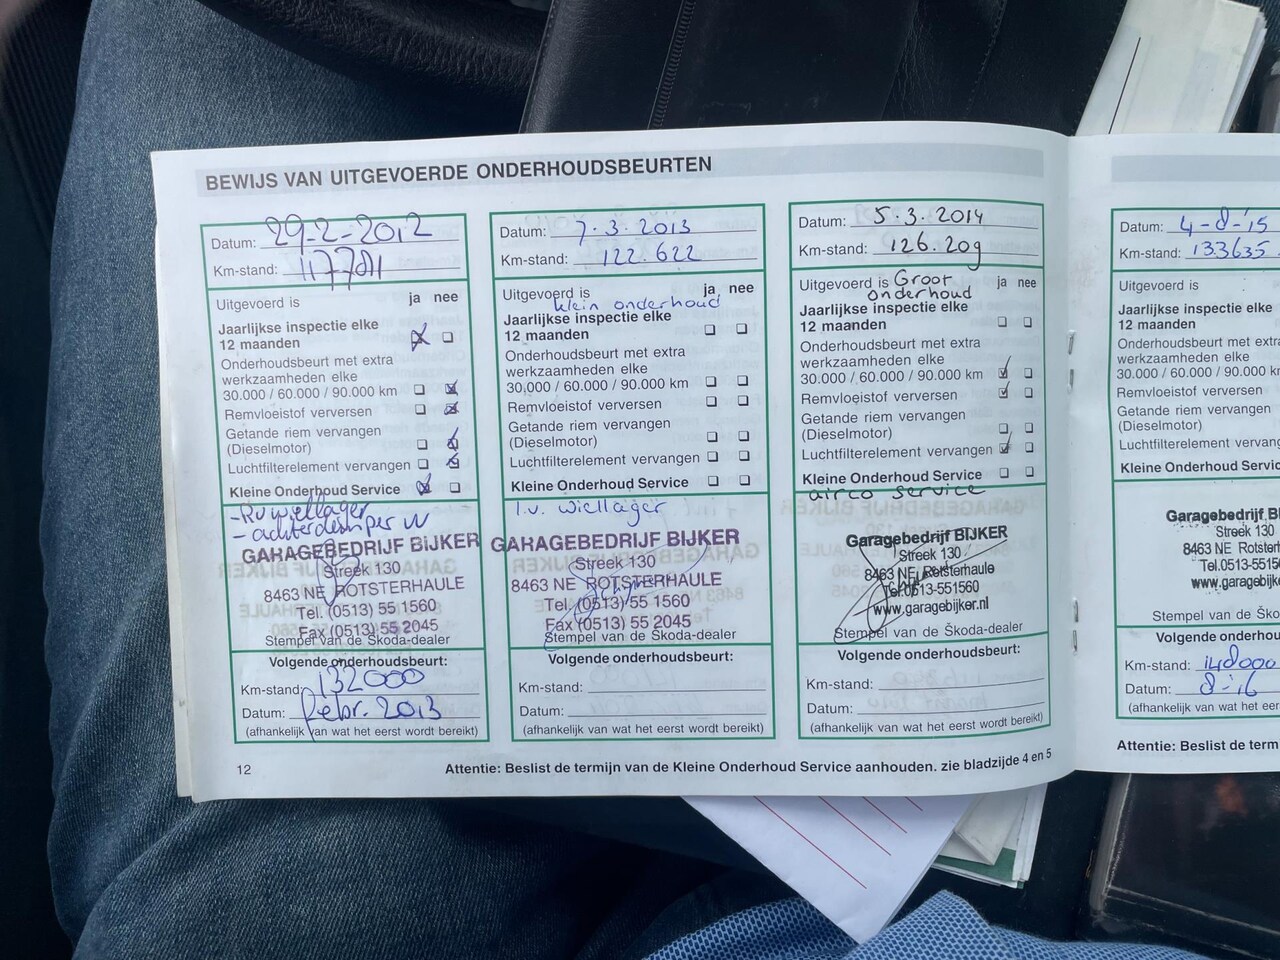 BEWIJS VAN UITGEVOERDE ONDERHOUDSBEURTEN
Datum: 29-2-2012
Km-stand:
Uitgevoerd is ja nee
Jaarlijkse inspectie elke
12 maanden
Onderhoudsbeurt met extra
werkzaamheden elke
30.000 / 60.000 / 90.000 km
Remvloeistof verversen
Getande riem vervangen
(Dieselmotor)
Luchtfilterelement vervangen
Kleine Onderhoud Service
GARAGEBEDRIJF BIJKER
Streek 130
8463 NE ROTSTERHAULE
Tel. (0513) 55 1560
Fax (0513) 55 2045
Stempel van de Škoda-dealer
Volgende onderhoudsbeurt:
Km-stand: 132000
Datum: febr. 2013
(afhankelijk van wat het eerst wordt bereikt)
Datum: 7.3.2013
Km-stand: 122.622
Uitgevoerd is ja nee
klein onderhoud
Jaarlijkse inspectie elke
12 maanden
Onderhoudsbeurt met extra
werkzaamheden elke
30.000 / 60.000 / 90.000 km
Remvloeistof verversen
Getande riem vervangen
(Dieselmotor)
Luchtfilterelement vervangen
Kleine Onderhoud Service
l.v. wiellager
GARAGEBEDRIJF BIJKER
Streek 130
8463 NE ROTSTERHAULE
Tel. (0513) 55 1560
Fax (0513) 55 2045
Stempel van de Škoda-dealer
Volgende onderhoudsbeurt:
Km-stand:
Datum:
(afhankelijk van wat het eerst wordt bereikt)
Datum: 5.3.2014
Km-stand: 126.209
Uitgevoerd is Groot ja nee
onderhoud
Jaarlijkse inspectie elke
12 maanden
Onderhoudsbeurt met extra
werkzaamheden elke
30.000 / 60.000 / 90.000 km
Remvloeistof verversen
Getande riem vervangen
(Dieselmotor)
Luchtfilterelement vervangen
Kleine Onderhoud Service
airco service
Garagebedrijf BIJKER
Streek 130
8463 NE Rotsterhaule
Tel. 0513-551560
www.garagebijker.nl
Stempel van de Škoda-dealer
Volgende onderhoudsbeurt:
Km-stand:
Datum:
(afhankelijk van wat het eerst wordt bereikt)
12
Attentie: Beslist de termijn van de Kleine Onderhoud Service aanhouden. zie bladzijde 4 en 5
Datum: 4-8-'15
Km-stand: 133635
Uitgevoerd is
Jaarlijkse inspectie
12 maanden
Onderhoudsbeurt
werkzaamheden
30.000 / 60.000 /
Remvloeistof
Getande riem
(Dieselmotor)
Luchtfilterelement
Kleine Onderhoud
Garagebedrijf
Streek 130
8463 NE
Tel.0513-5515
www.garagebijk
Stempel van de
Volgende
Km-stand: 148000
Datum: 8-'16
(afhankelijk van wat
Attentie: Beslist de